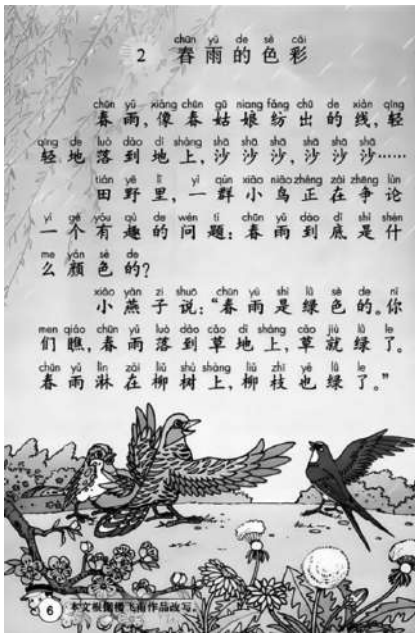 chūn yǔ de sè cǎi
2 春雨的色彩
chūn yǔ xiàng chūn gū niang fǎng chū de xiàn qīng
春雨,像春姑娘纺出的线,轻
qīng de luò dào dì shàng shā shā shā shā shā shā
轻地落到地上,沙沙沙,沙沙沙……
tián yě lǐ yì qún xiǎo niǎo zhèng zài zhēng lùn
田野里,一群小鸟正在争论
yí gè yǒu qù de wèn tí chūn yǔ dào dǐ shì shén
一个有趣的问题:春雨到底是什
me yán sè de
么颜色的?
xiǎo yàn zi shuō chūn yǔ shì lǜ sè de nǐ
小燕子说:“春雨是绿色的。你
men qiáo chūn yǔ luò dào cǎo dì shàng cǎo jiù lǜ le
们瞧,春雨落到草地上,草就绿了。
chūn yǔ lín zài liǔ shù shàng liǔ zhī yě lǜ le
春雨淋在柳树上,柳枝也绿了。”
6 本文根据楼飞甫作品改写。